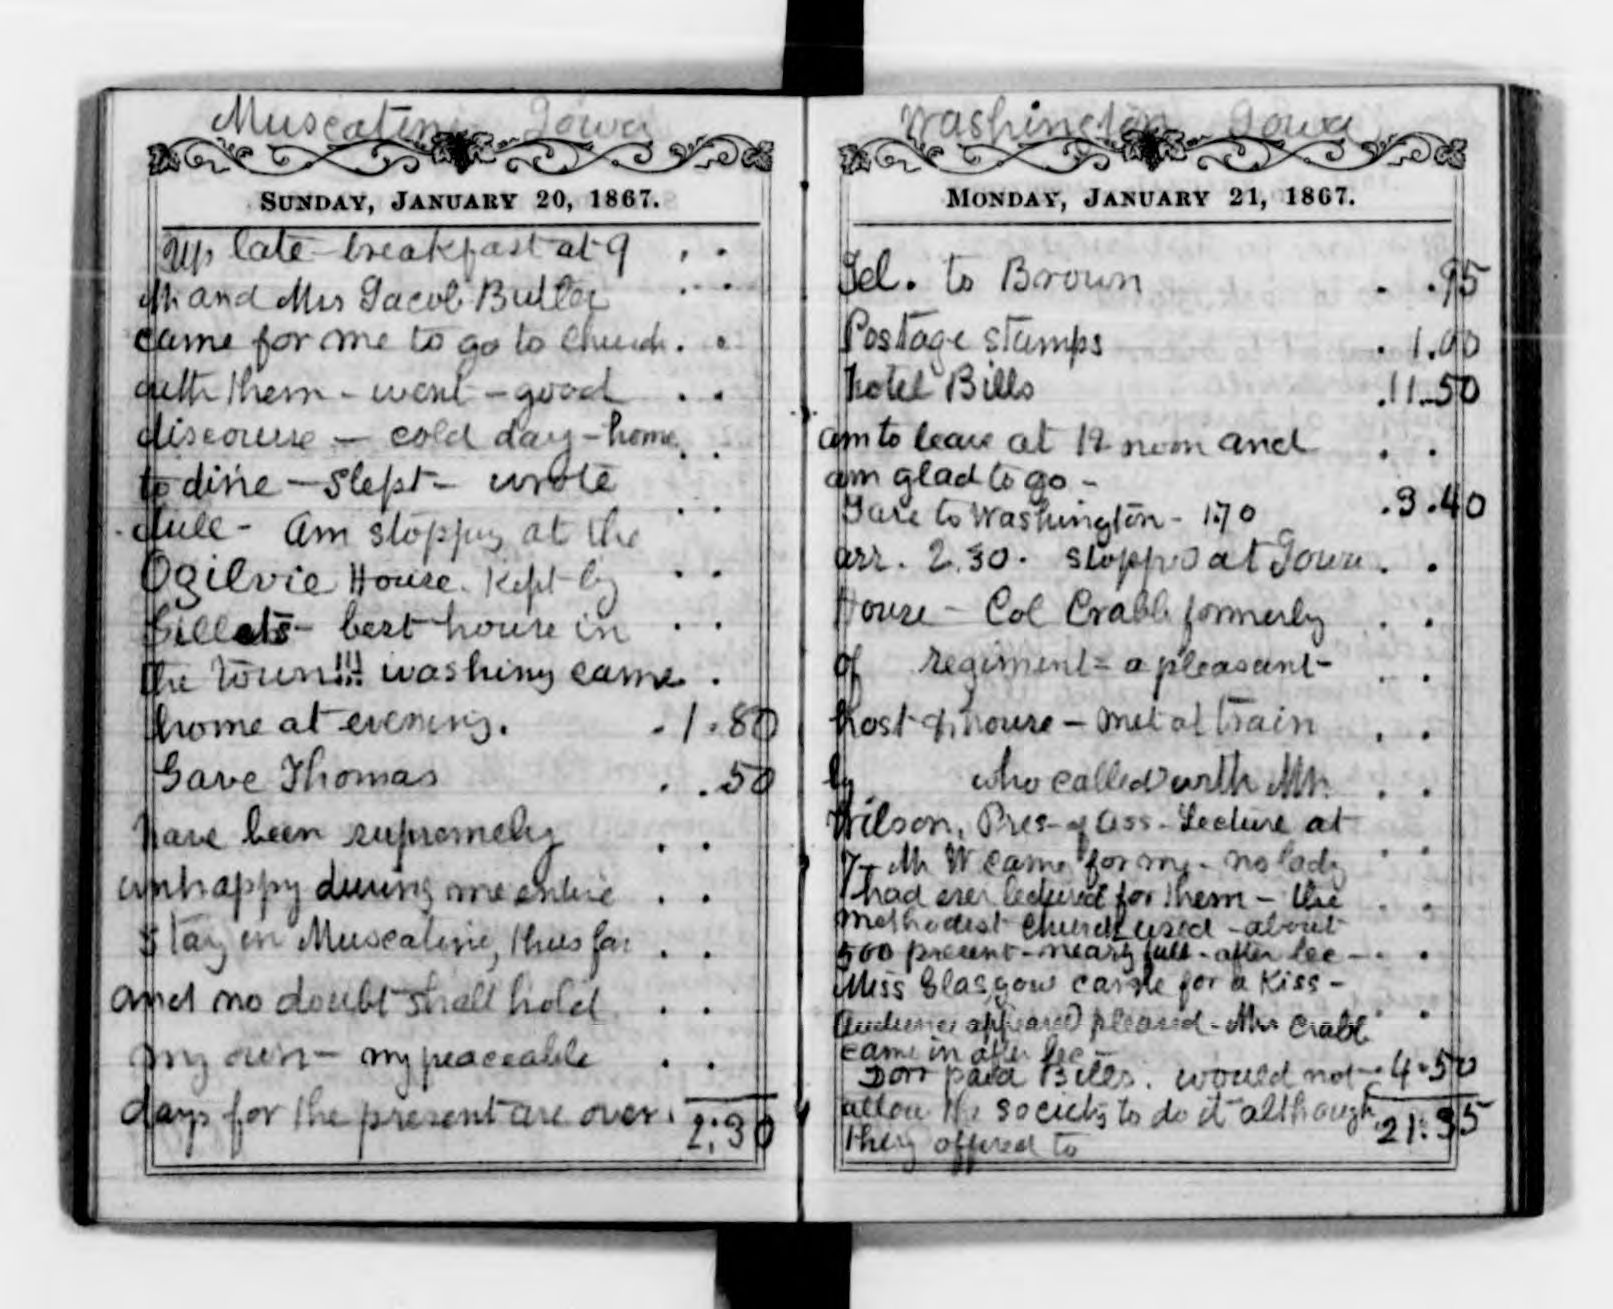 Muscatine Iowa
SUNDAY, JANUARY 20, 1867.
Up late - breakfast at 9
Mr and Mrs Jacob Butler
came for me to go to Church
with them - went - good
discourse - cold day - home
to dine - slept - wrote
dull - am stopping at the
Ogilvie House. Kept by
Gilletts - best house in
the town!!! washing came
home at evening. 1.80
Gave Thomas .50
have been supremely
unhappy during me entire
stay in Muscatine, thus far
and no doubt shall hold
my own - my peaceable
days for the present are over.
2.30
Washington Iowa
MONDAY, JANUARY 21, 1867.
Tel. to Brown .95
Postage stamps 1.00
Hotel Bills 11.50
am to leave at 12 noon and
am glad to go -
Fare to Washington - 1.70 3.40
arr. 2.30. stopped at Iowa
House - Col Crabb formerly
of regiment - a pleasant -
host of house - met at train
by who called with Mr.
Wilson, Pres - of Ass - Lecture at
7 - Mr W came for me - no lady
had ever lectured for them - the
methodist Church used - about
500 present - nearly full - after lec -
Miss Glasgow came for a Kiss -
Audience appeared pleased - Mrs Crabb
came in after lec -
Dorr paid Bills. would not - 4.50
allow the society to do it although
they offered to
21.35